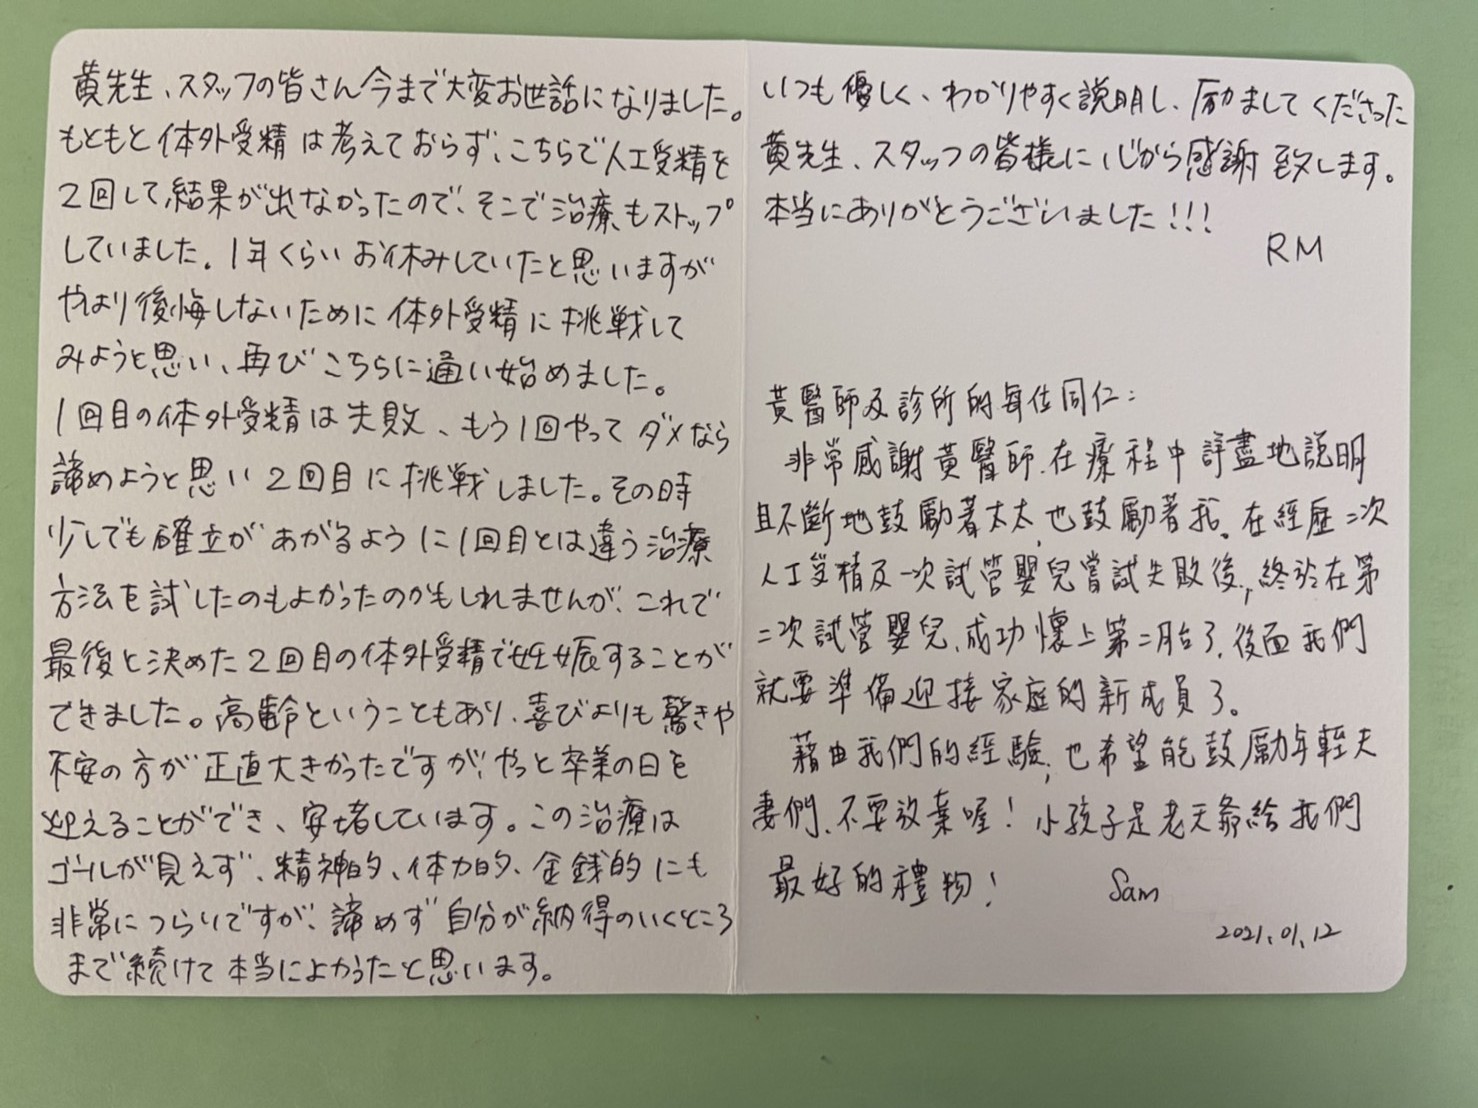 黄先生、スタッフの皆さん今まで大変お世話になりました。
もともと体外受精は考えておらず、こちらで人工受精を
2回して、結果が出なかったので、そこで治療もストップ
していました。1年くらいお休みしていたと思いますが
やはり後悔しないために体外受精に挑戦して
みようと思い、再びこちらに通い始めました。
1回目の体外受精は失敗、もう1回やってダメなら
諦めようと思い2回目に挑戦しました。その時
少しでも確立があがるように1回目とは違う治療
方法を試したのもよかったのかもしれませんが、これで
最後と決めた2回目の体外受精で妊娠することが
できました。高齢ということもあり、喜びよりも驚きや
不安の方が正直大きかったですが、やっと卒業の日を
迎えることができ、安堵しています。この治療は
ゴールが見えず、精神的、体力的、金銭的にも
非常につらいですが、諦めず自分が納得のいくところ
まで続けて本当によかったと思います。
いつも優しく、わかりやすく説明し、励ましてくださった
黄先生、スタッフの皆様に心から感謝致します。
本当にありがとうございました!!!
RM
黃醫師及診所的每位同仁:
非常感謝黃醫師,在療程中詳盡地說明
且不斷地鼓勵著太太,也鼓勵著我。在經歷二次
人工受精及一次試管嬰兒嘗試失敗後,終於在第
二次試管嬰兒,成功懷上第二胎了,後面我們
就要準備迎接家庭的新成員了。
藉由我們的經驗,也希望能鼓勵年輕夫
妻們,不要放棄喔!小孩子是老天爺給我們
最好的禮物!
Sam
2021.01.12